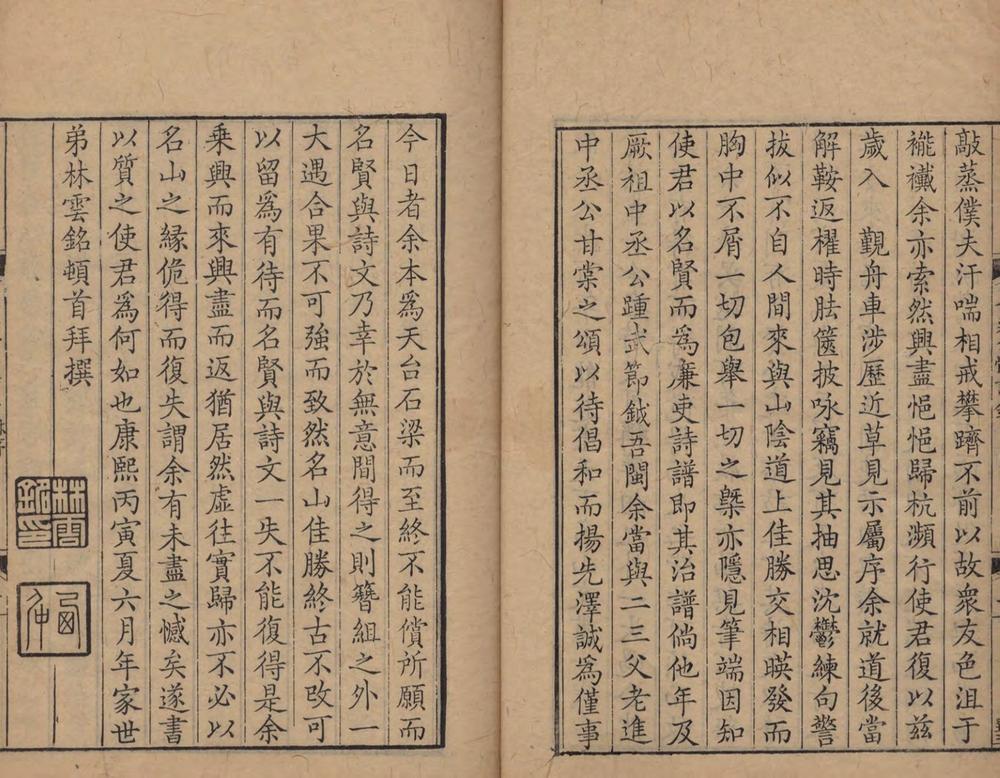 敲蒸僕夫汗喘相戒攀躋不前以故衆友色沮于
襬襶余亦索然興盡悒悒歸杭瀕行使君復以茲
歲入　覲舟車涉歷近草見示屬序余就道後當
解鞍返櫂時胠篋披咏竊見其抽思沈鬱練句警
拔似不自人間來與山陰道上佳勝交相暎發而
胸中不屑一切包舉一切之槩亦隱見筆端因知
使君以名賢而爲廉吏詩譜即其治譜倘他年及
厥祖中丞公踵武節鉞吾閩余當與二三父老進
中丞公甘棠之頌以待倡和而揚先澤誠爲僅事
今日者余本爲天台石梁而至終不能償所願而
名賢與詩文乃幸於無意間得之則簪組之外一
大遇合果不可強而致然名山佳勝終古不改可
以留爲有待而名賢與詩文一失不能復得是余
乗興而來興盡而返猶居然虛往實歸亦不必以
名山之緣佹得而復失謂余有未盡之憾矣遂書
以質之使君爲何如也康熙丙寅夏六月年家世
弟林雲銘頓首拜撰
林雲銘印
西仲